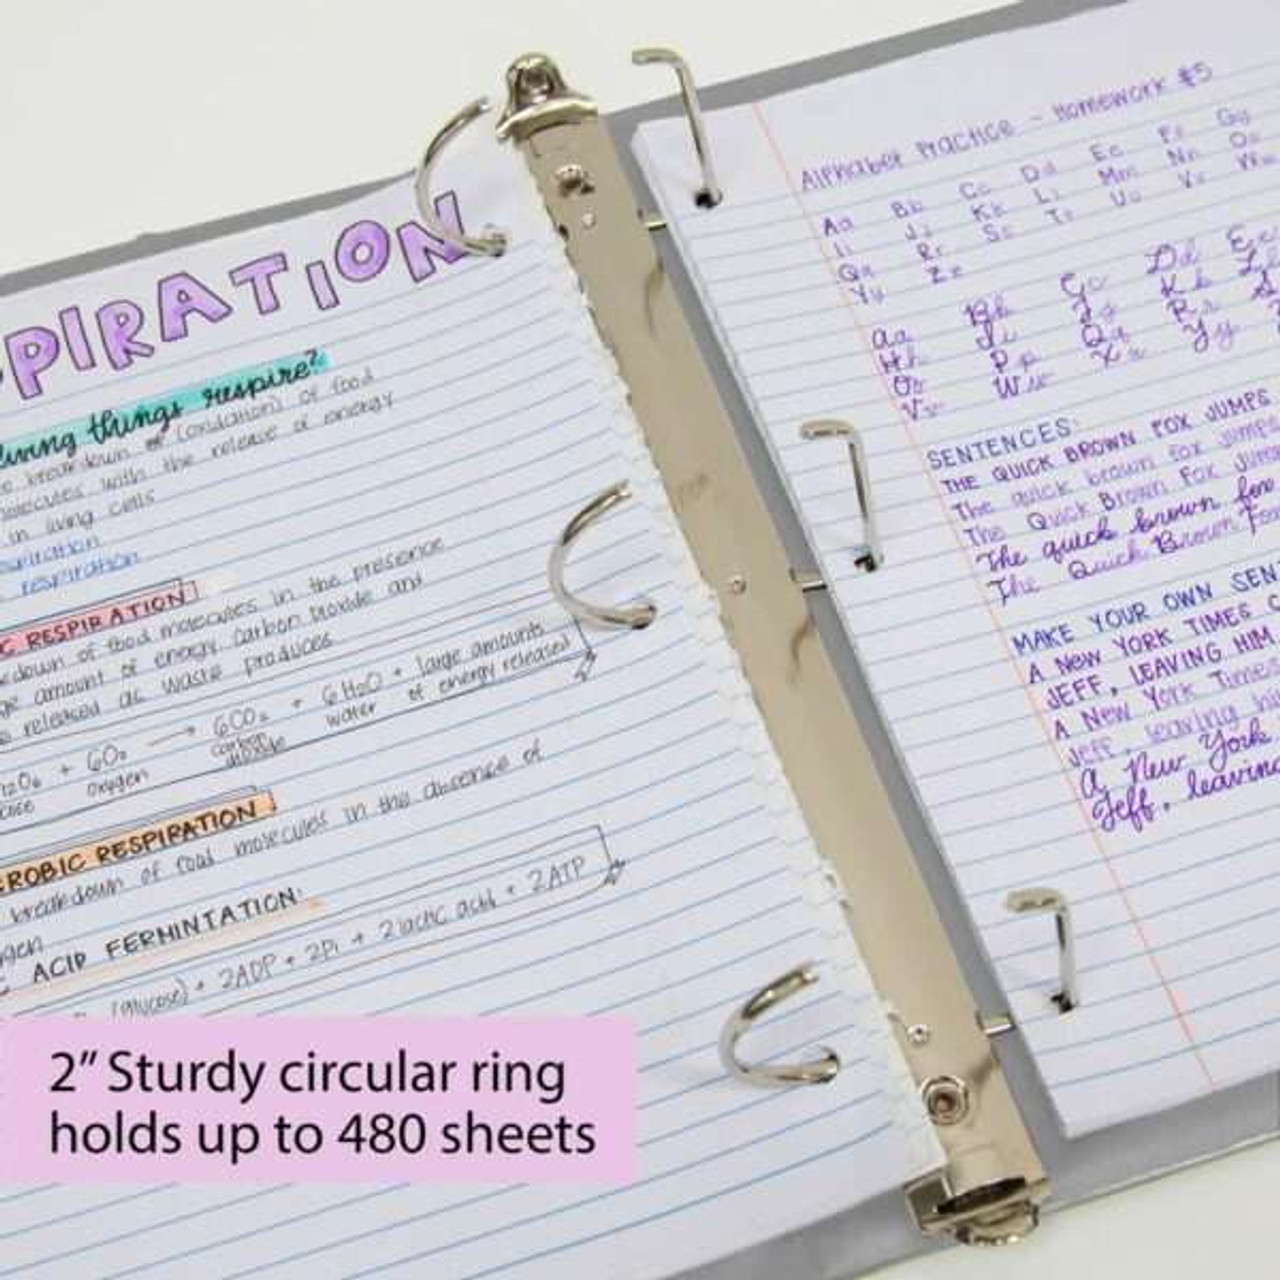 PIRATION
living things respire?
breakdown of (oxidation) of food
molecules with the release of energy
in living cells
respiration
respiration
C RESPIRATION
kdown of food molecules in the presence
ge amount of energy. Carbon Dioxide and
released as waste produces
+ 6O₂ → 6CO₂ + 6H₂O + large amounts
oxygen carbon dioxide water of energy released
EROBIC RESPIRATION
breakdown of food molecules in the absence of
ygen
C ACID FERMINTATION:
(glucose) + 2ADP + 2Pi + 2lactic acid + 2ATP
2” Sturdy circular ring
holds up to 480 sheets
Alphabet Practice - Homework #5
Aa Bb Cc Dd Ee Ff Gg
Ii Jj Kk Ll Mm Nn Oo
Qq Rr Ss Tt Uu Vv Ww
Yy Zz
Aa Bb Cc Dd Ee
Hh Ii Jj Kk Ll
Oo Pp Qq Rr
Vv Ww Xx Yy
SENTENCES:
THE QUICK BROWN FOX JUMPS
The quick brown fox jumps
The Quick Brown Fox Jump
The quick brown fox
The Quick Brown Fox
MAKE YOUR OWN SEN
A NEW YORK TIMES
JEFF, LEAVING HIM
A New York Times
Jeff, leaving hi
A New York
Jeff, leaving